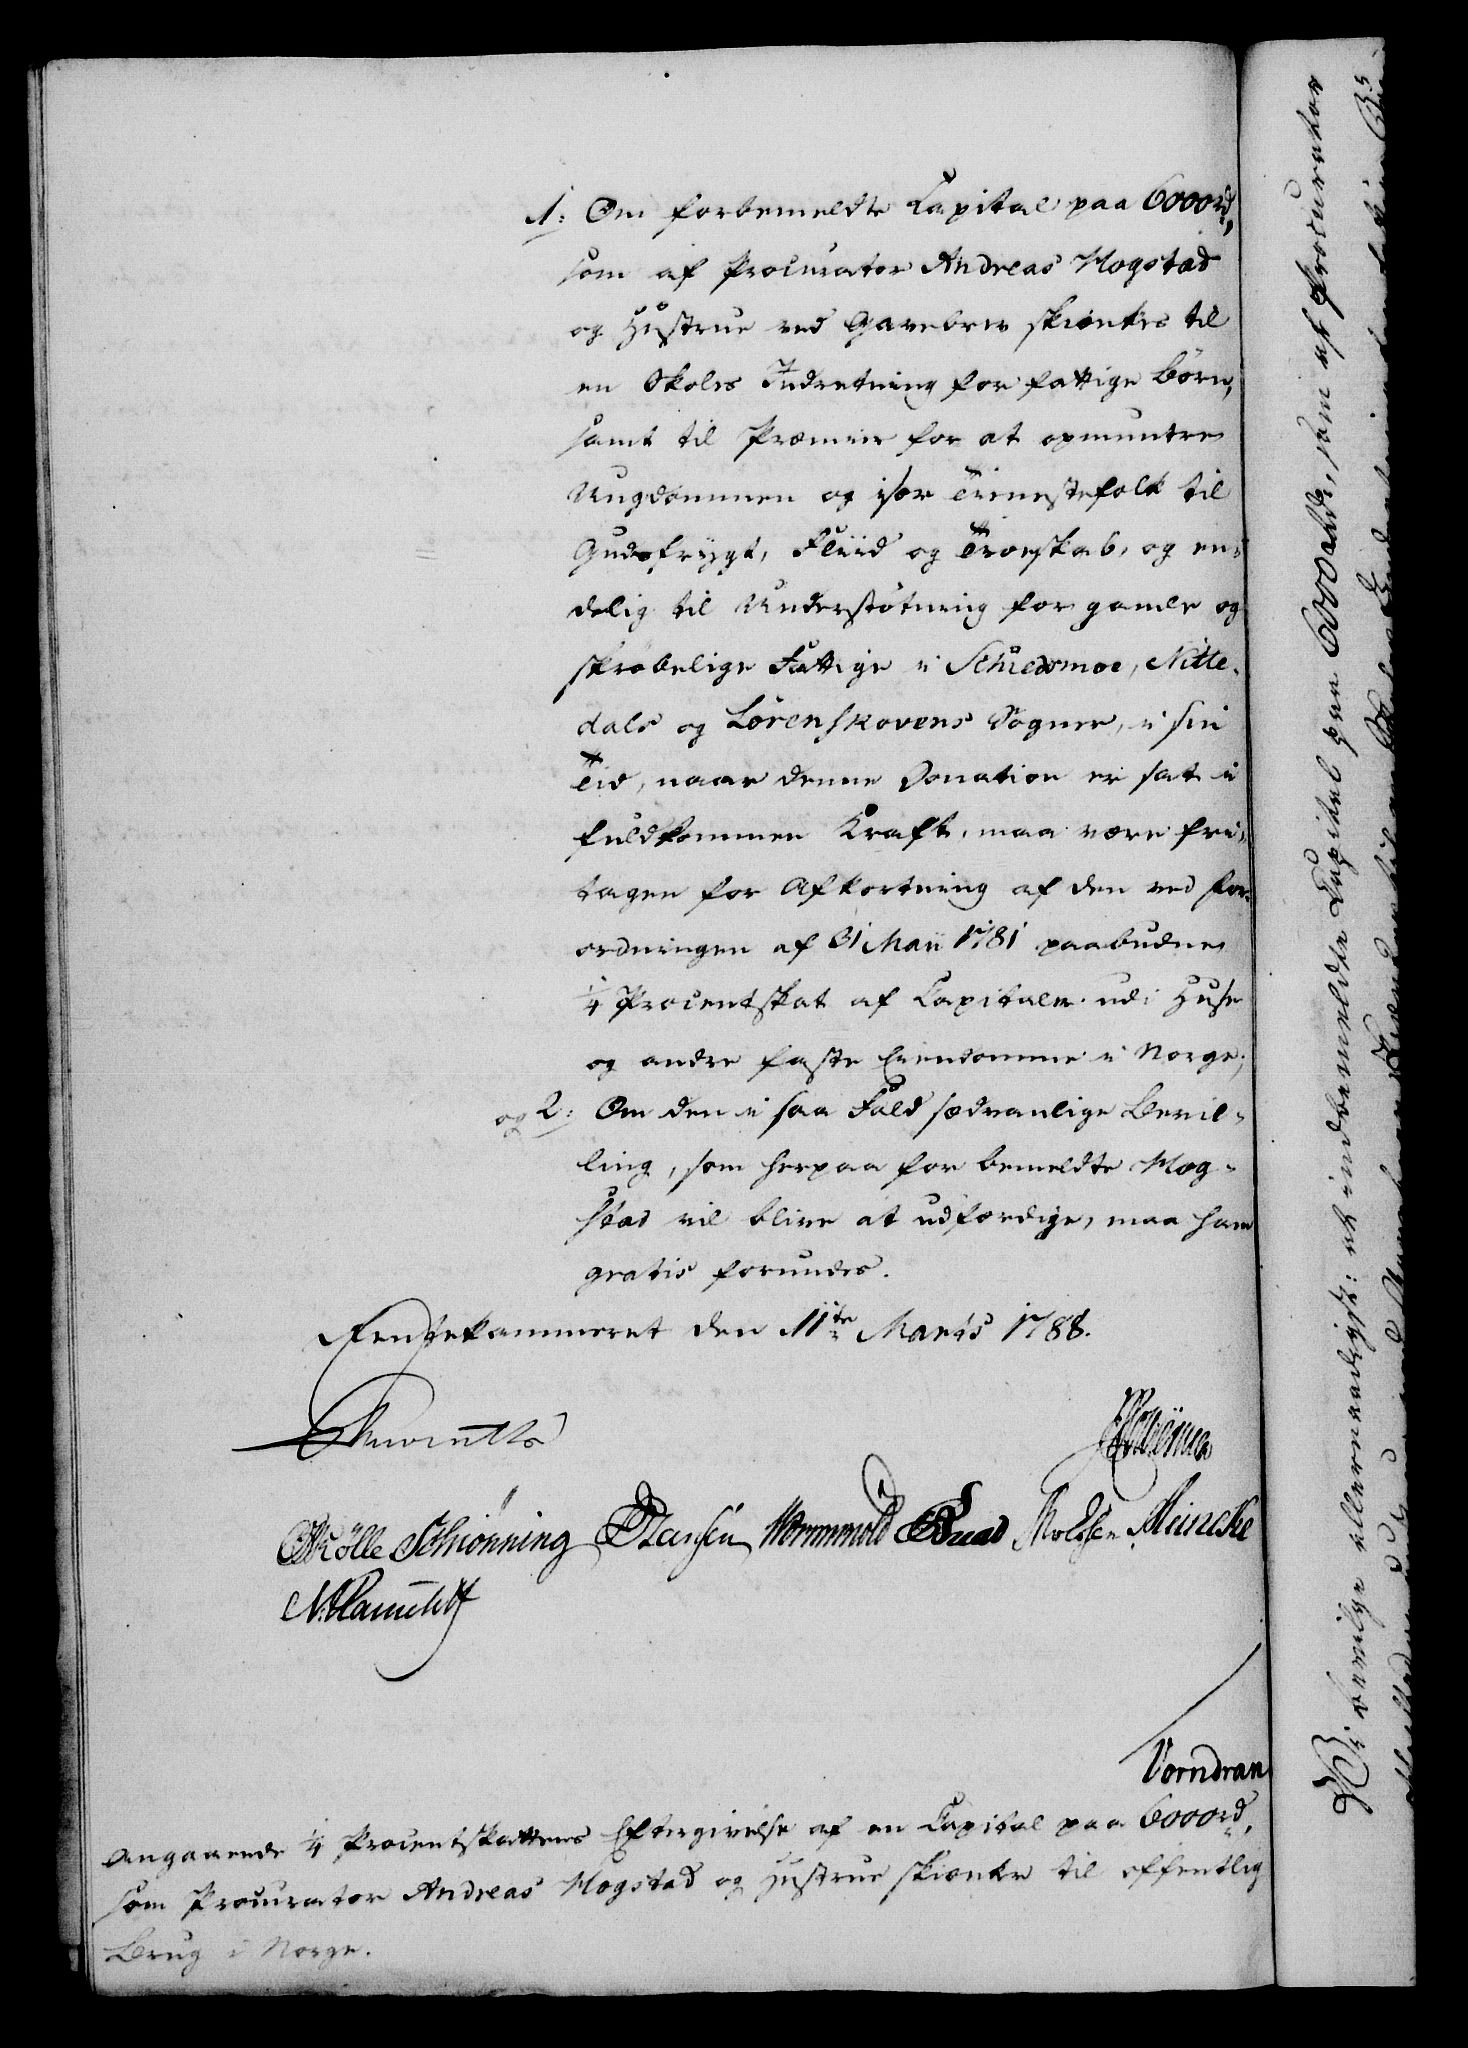 1: Om forbemeldte Capital paa 6000 rd,
som af Procurator Andreas Mogstad
og Hustrue ved Gavebrev skienkes til
en Skoles Indretning for fattige Börn,
samt til Præmier for at opmuntre
Ungdommen og især Tienestefolk til
Gudsfrygt, Fliid og Troeskab, og en-
delig til Understøtning for gamle og
skrøbelige Fattige i Schiedsmoe, Nitte-
dals og Lørenskovens Sogner, i sin
Tid, naar denne Donation er sat i
fuldkommen Kraft, maa være fri-
tagen for Afkortning af den ved For-
ordningen af 31 Maii 1781 paabudne
1/4 Procentskat af Capitaler udi Huse
og andre faste Eiendomme i Norge;
og 2: Om den i saa Fald sædvanlige Bevil-
ling, som herpaa for bemeldte Mog-
stad vil blive at udfærdige, maa ham
gratis forundes.
Rentekammeret den 11te Marts 1788.
Schiønning Hansen Wormskiold Meincke
Vorndran
Angaaende 1/4 Procentskattens Eftergivelse af en Capital paa 6000 rd,
som Procurator Andreas Mogstad og Hustrue skienke til offentlig
Brug i Norge.
Vi bevilge allernaadigst: at indbemeldte Capital paa 6000 rd, som af Procurator